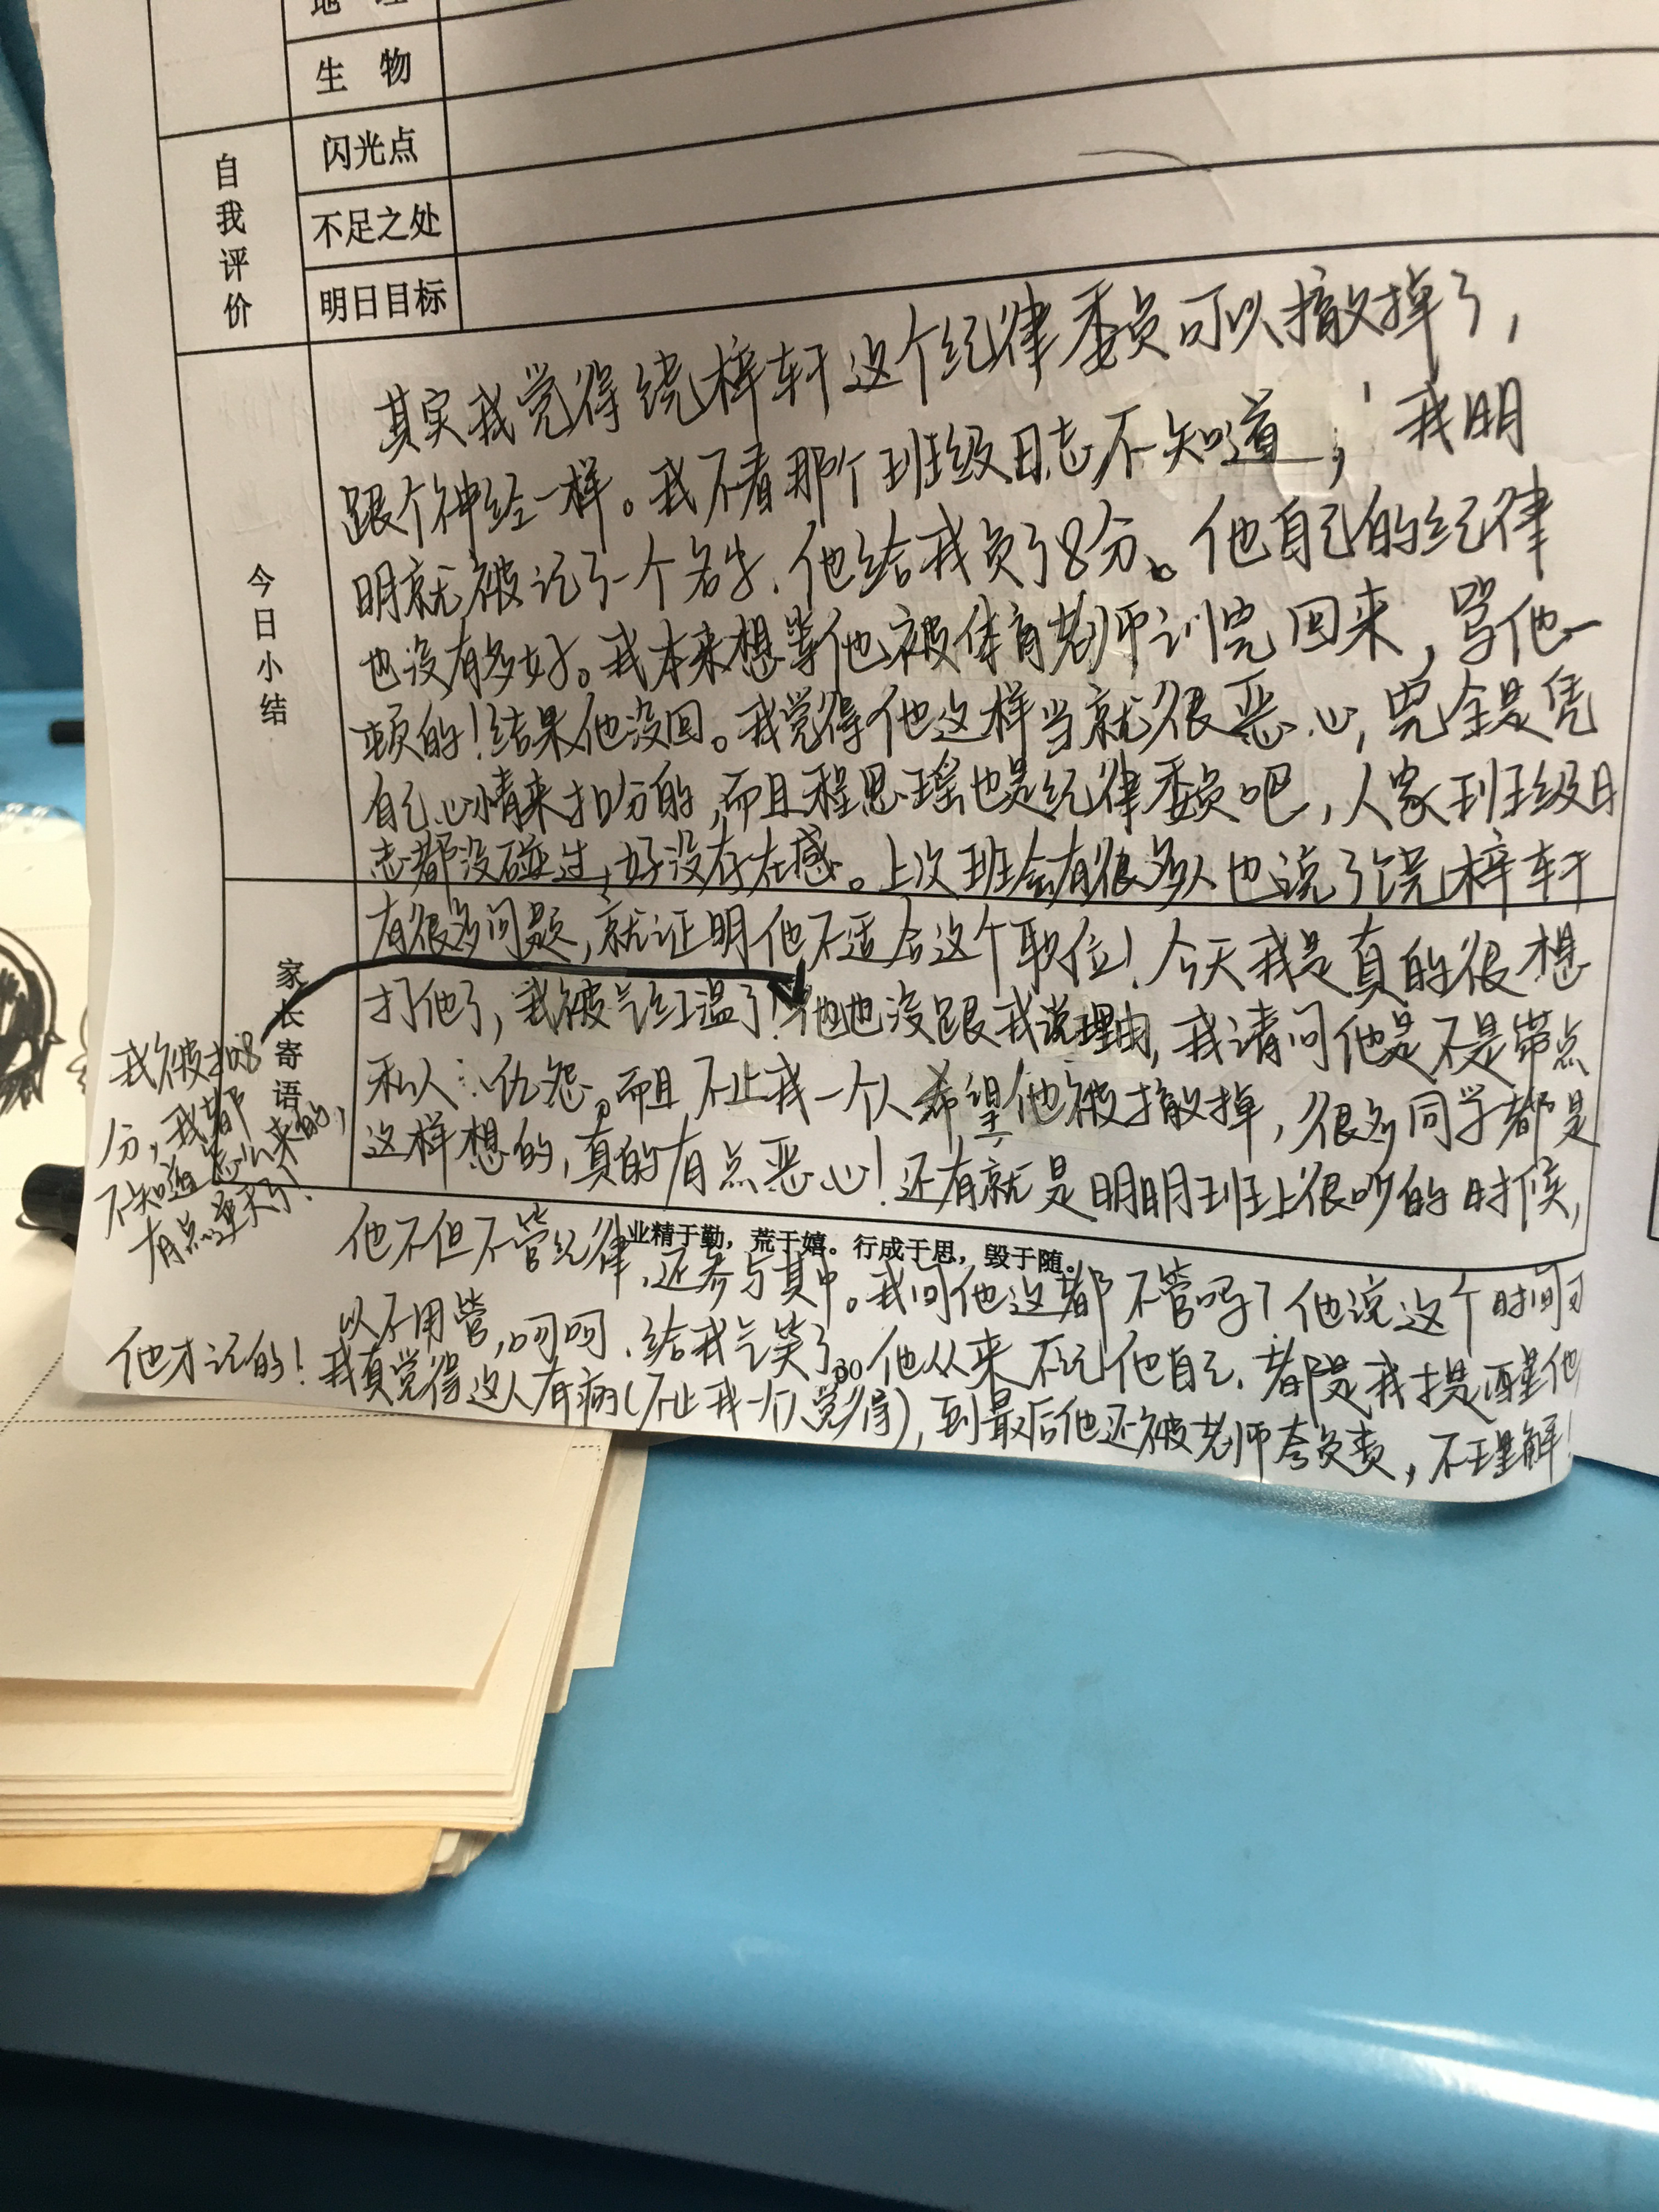 生 物
自我评价
闪光点
不足之处
明日目标
今日小结
其实我觉得绕梓轩这个纪律委员可以撤掉了，
跟个神经一样。我不看那个班级日志不知道，我明
明就被记了一个名字，他给我负了8分。他自己的纪律
也没有多好。我本来想等他被体育老师训完回来，骂他一
顿的！结果他没回。我觉得他这样当就很恶心，完全是凭
自己心情来扣分的，而且程思瑶也是纪律委员吧，人家班级日
志都没碰过，好没存在感。上次班会有很多人也说了饶梓轩
家长寄语
有很多问题，就证明他不适合这个职位！今天我是真的很想
打他了，我被气红温了！他也没跟我说理由，我请问他是不是带点
私人仇怨。而且不止我一个人希望他被撤掉，很多同学都是
这样想的，真的有点恶心！还有就是明明班上很吵的时候，
我被扣8
分，我都
不知道怎么来的，
有点逆天了！
业精于勤，荒于嬉。行成于思，毁于随。
他不但不管纪律，还参与其中。我问他这都不管吗？他说这个时间可
以不用管，呵呵，给我气笑了。他从来不记他自己，都是我提醒他
他才记的！我真觉得这人有病（不止我一个人觉得），到最后他还被老师夸负责，不理解！